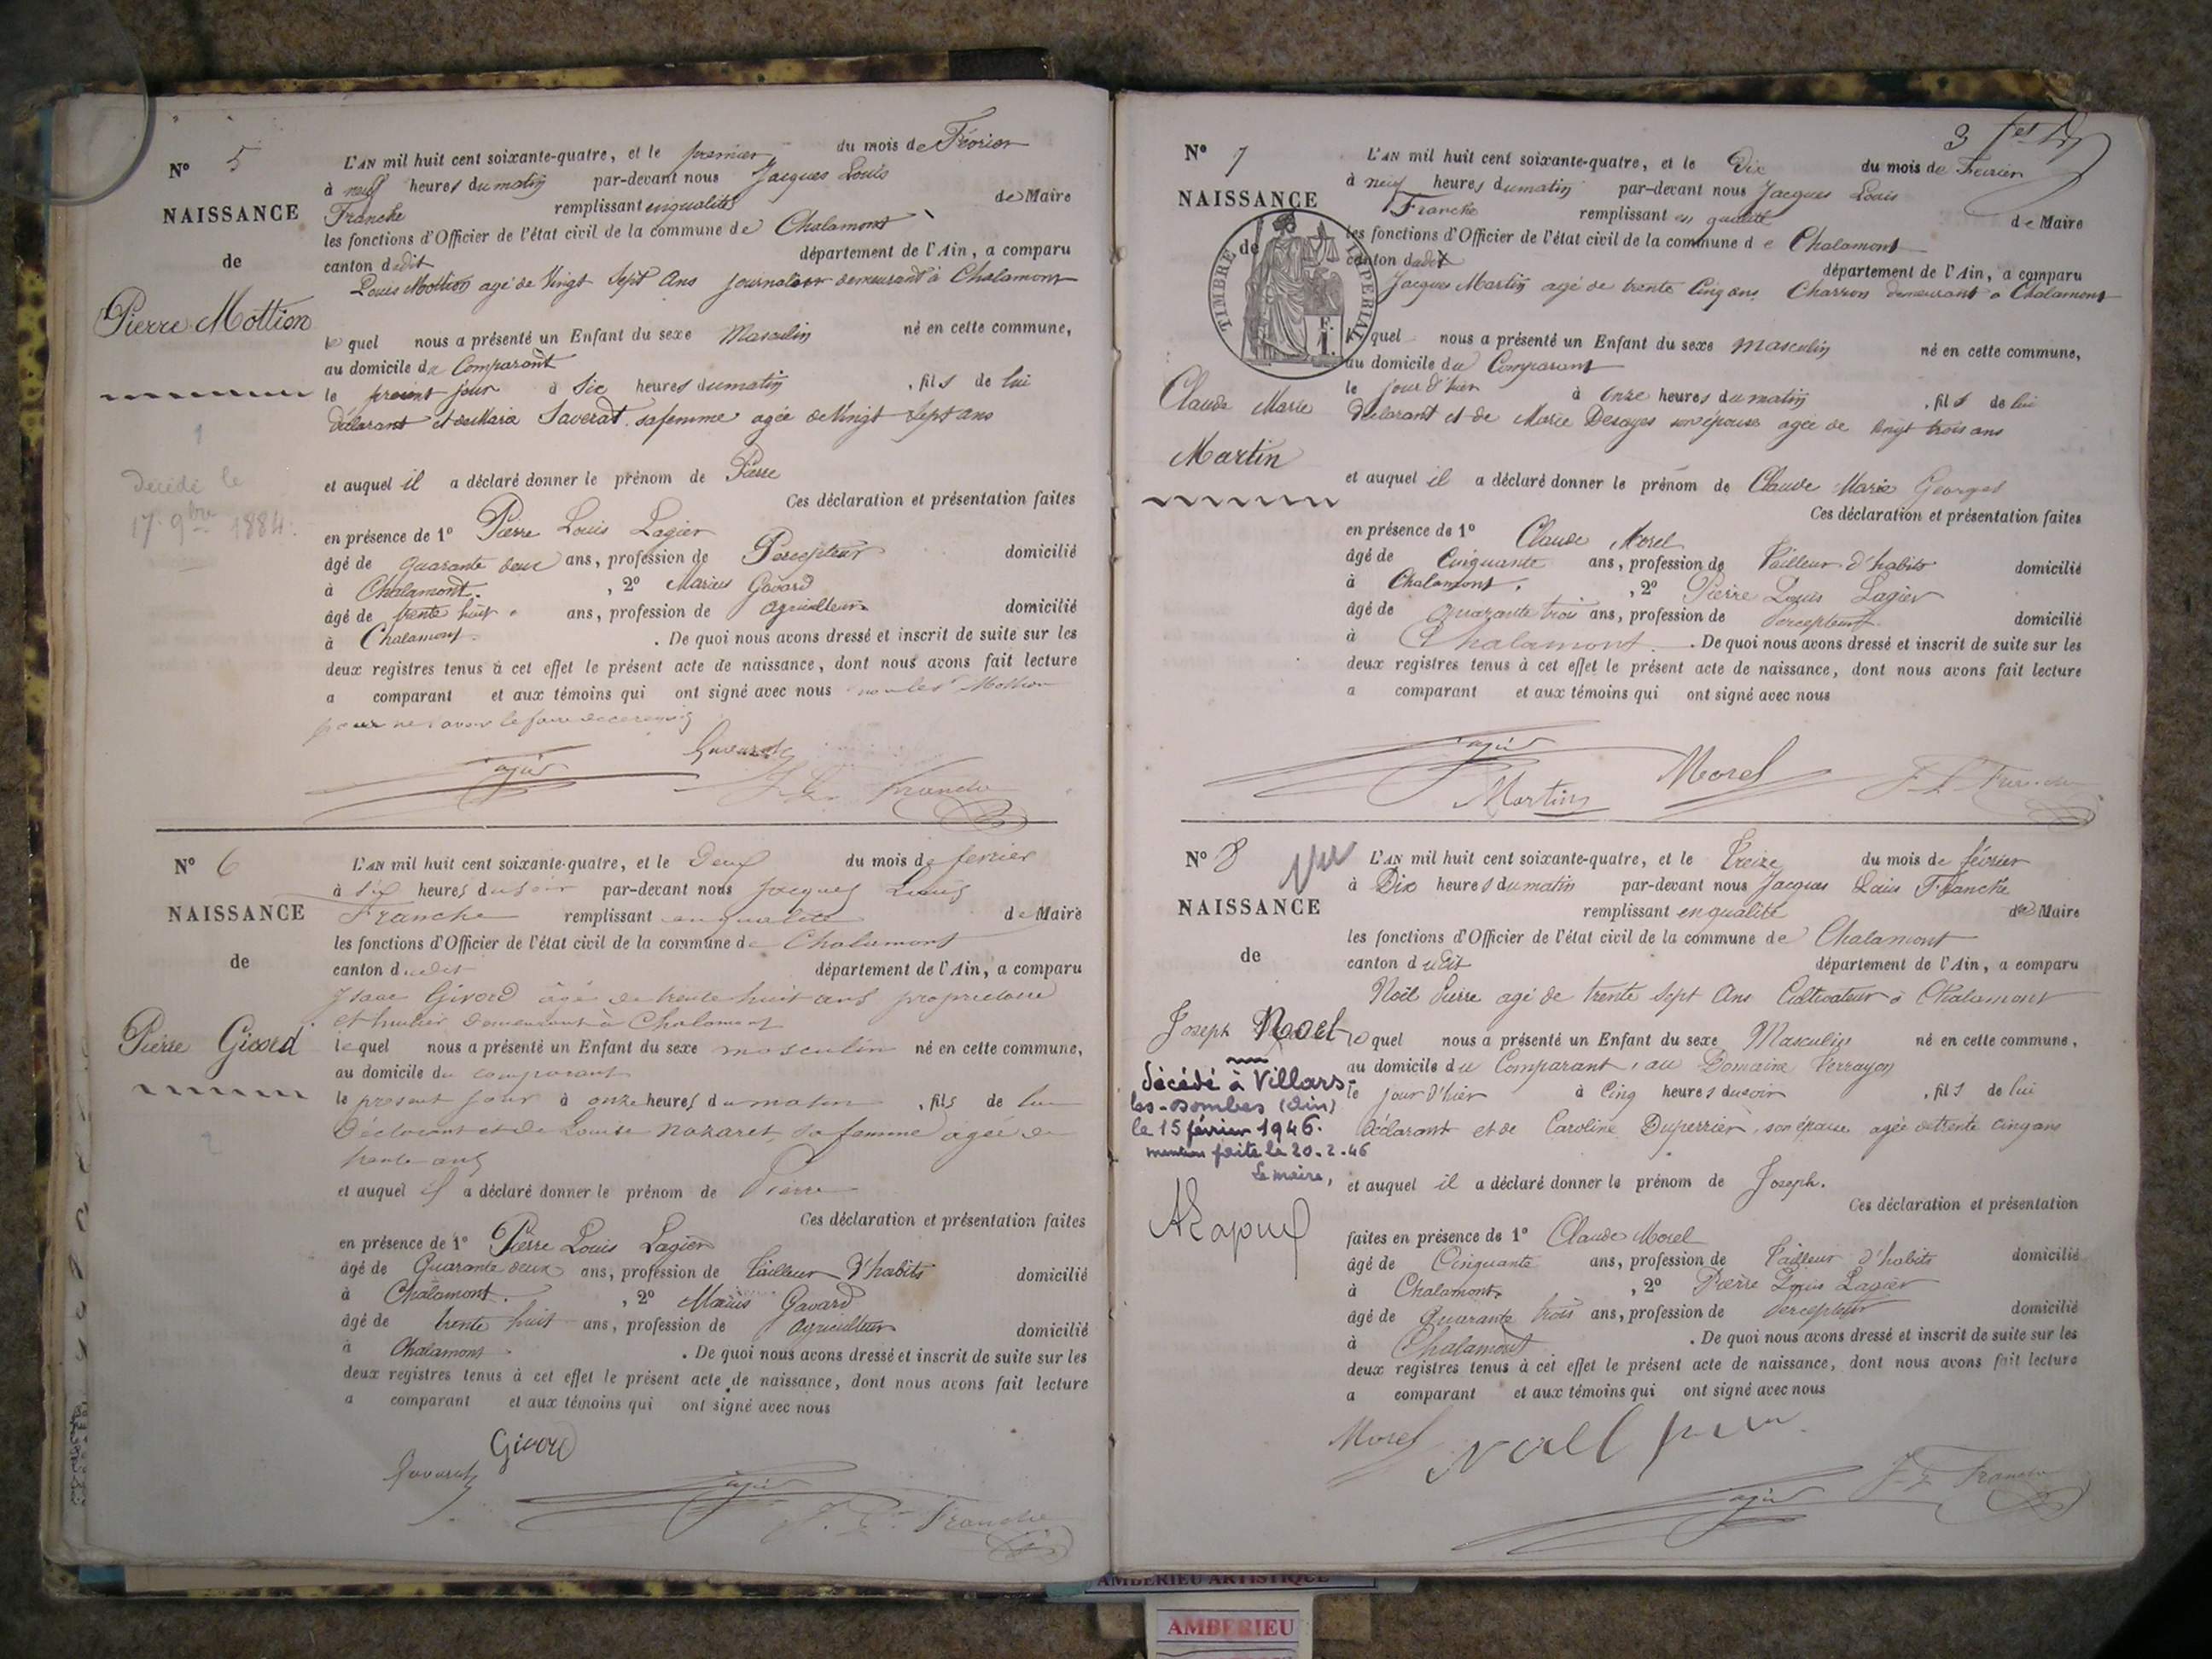 N° 5
NAISSANCE
de
Pierre Mottion
Décédé le
17 9bre 1884.
L'AN mil huit cent soixante-quatre, et le premier du mois de Février
à neuf heures du matin par-devant nous Jacques Louis
Franche remplissant en qualité de Maire
les fonctions d'Officier de l'état civil de la commune de Chalamont
canton dudit département de l'Ain, a comparu
Louis Mottion agé de Vingt Sept Ans journalier demeurant à Chalamont
lequel nous a présenté un Enfant du sexe Masculin né en cette commune,
au domicile du Comparant
le présent jour à Six heures du matin, fils de lui
déclarant et de Maria Saverat sa femme agée de Vingt Sept ans
et auquel il a déclaré donner le prénom de Pierre
Ces déclaration et présentation faites
en présence de 1° Pierre Louis Lagier
âgé de quarante deux ans, profession de Percepteur domicilié
à Chalamont. , 2° Marius Gavard
âgé de trente huit ans, profession de agriculteur domicilié
à Chalamont. De quoi nous avons dressé et inscrit de suite sur les
deux registres tenus à cet effet le présent acte de naissance, dont nous avons fait lecture
a comparant et aux témoins qui ont signé avec nous non led Mottion
pour ne savoir le faire de ce requis
J. L. Franche
N° 6
NAISSANCE
de
Pierre Givord
2
L'AN mil huit cent soixante-quatre, et le Deux du mois de fevrier
à six heures du soir par-devant nous Jacques Louis
Franche remplissant en qualité de Maire
les fonctions d'Officier de l'état civil de la commune de Chalamont
canton dudit département de l'Ain, a comparu
Givord âgé de trente huit ans propriétaire
et demeurant à Chalamont
lequel nous a présenté un Enfant du sexe masculin né en cette commune,
au domicile du comparant
le present jour à onze heures du matin, fils de lui
déclarant et de Louise Nazaret, sa femme agée de
trente ans
et auquel il a déclaré donner le prénom de Pierre
Ces déclaration et présentation faites
en présence de 1° Pierre Louis Lagier
âgé de Quarante deux ans, profession de tailleur d'habits domicilié
à Chalamont. , 2° Marius Gavard
âgé de trente huit ans, profession de agriculteur domicilié
à Chalamont. De quoi nous avons dressé et inscrit de suite sur les
deux registres tenus à cet effet le présent acte de naissance, dont nous avons fait lecture
a comparant et aux témoins qui ont signé avec nous
Givord
J. L. Franche
3
N° 7
NAISSANCE
de
TIMBRE IMPERIAL
Claude Marie
Martin
L'AN mil huit cent soixante-quatre, et le Dix du mois de Fevrier
à neuf heures du matin par-devant nous Jacques Louis
Franche remplissant en qualité de Maire
les fonctions d'Officier de l'état civil de la commune de Chalamont
canton dudit département de l'Ain, a comparu
Jacques Martin agé de trente Cinq ans Charron demeurant à Chalamont
lequel nous a présenté un Enfant du sexe masculin né en cette commune,
au domicile du Comparant
le jour d'hier à onze heures du matin, fils de lui
déclarant et de Marie Desayes son épouse agée de vingt trois ans
et auquel il a déclaré donner le prénom de Claude Marie Georges
Ces déclaration et présentation faites
en présence de 1° Claude Morel
âgé de Cinquante ans, profession de Tailleur d'habits domicilié
à Chalamont. , 2° Pierre Louis Lagier
âgé de quarante trois ans, profession de Percepteur domicilié
à Chalamont. De quoi nous avons dressé et inscrit de suite sur les
deux registres tenus à cet effet le présent acte de naissance, dont nous avons fait lecture
a comparant et aux témoins qui ont signé avec nous
Martin Morel J. L. Franche
N° 8
NAISSANCE
de
Joseph Noel
décédé à Villars-
les-Dombes (Ain)
le 15 février 1946.
mention faite le 20.2.46
Le maire,
L'AN mil huit cent soixante-quatre, et le treize du mois de février
à Dix heures du matin par-devant nous Jacques Louis Franche
remplissant en qualité de Maire
les fonctions d'Officier de l'état civil de la commune de Chalamont
canton dudit département de l'Ain, a comparu
Noël Pierre agé de trente sept Ans Cultivateur à Chalamont
lequel nous a présenté un Enfant du sexe Masculin né en cette commune,
au domicile du Comparant, au Domaine Verrayon
le jour d'hier à Cinq heures du soir, fils de lui
Déclarant et de Caroline Duperrier, son épouse agée de trente cinq ans
et auquel il a déclaré donner le prénom de Joseph.
Ces déclaration et présentation
faites en présence de 1° Claude Morel
âgé de Cinquante ans, profession de Tailleur d'habits domicilié
à Chalamont. , 2° Pierre Louis Lagier
âgé de Quarante trois ans, profession de Percepteur domicilié
à Chalamont. De quoi nous avons dressé et inscrit de suite sur les
deux registres tenus à cet effet le présent acte de naissance, dont nous avons fait lecture
a comparant et aux témoins qui ont signé avec nous
Morel
J. L. Franche
AMBERIEU ARTISTIQUE
AMBERIEU